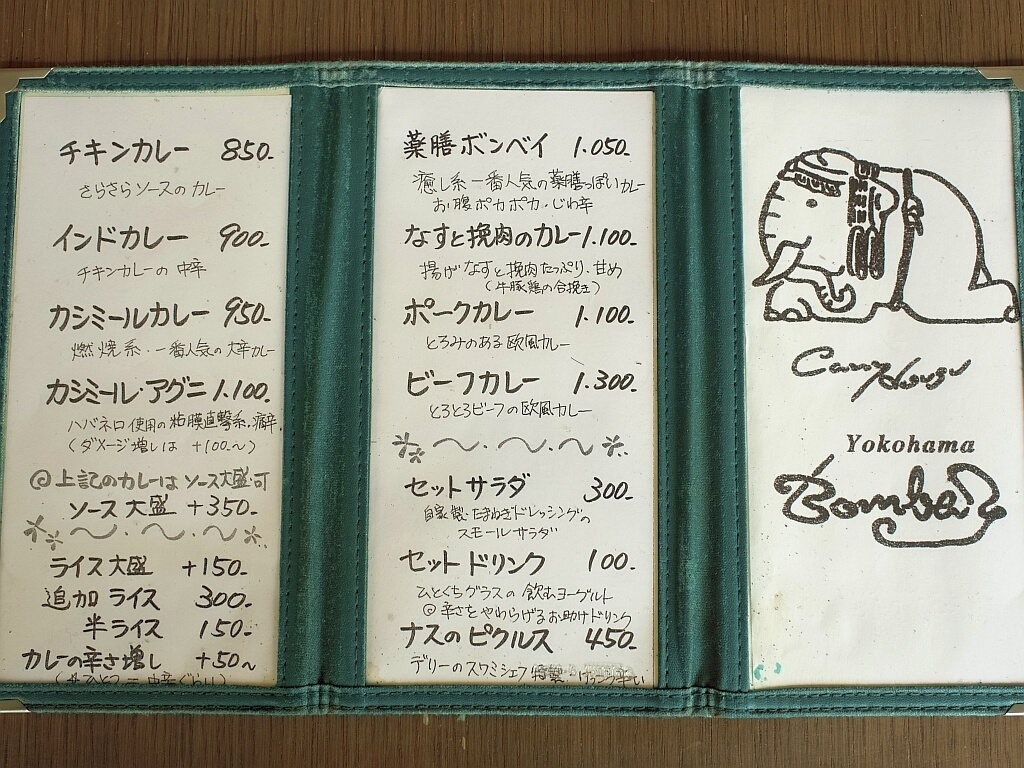 チキンカレー 850-
さらさらソースのカレー
インドカレー 900-
チキンカレーの 中辛
カシミールカレー 950-
燃焼系・一番人気の大辛カレー
カシミール・アグニ 1.100-
ハバネロ使用の粘膜直撃系.痛辛.
(ダメージ増しは +100.~)
◎上記のカレーは ソース大盛可
ソース 大盛 +350-
ライス大盛 +150-
追加 ライス 300-
半ライス 150-
カレーの辛さ増し +50~
薬膳ボンベイ 1.050-
癒し系一番人気の薬膳っぽいカレー
お腹ポカポカ・じわ辛
なすと挽肉のカレー 1.100-
揚げなすと挽肉たっぷり、甘め
(牛豚鶏の合挽き)
ポークカレー 1.100-
とろみのある欧風カレー
ビーフカレー 1.300-
とろとろビーフの欧風カレー
セットサラダ 300-
自家製・たまねぎドレッシングの
スモールサラダ
セットドリンク 100-
ひとくちグラスの 飲むヨーグルト
◎ 辛さをやわらげるお助けドリンク
ナスのピクルス 450-
デリーのスワミシェフ特製
Curry House
Yokohama
Bombay